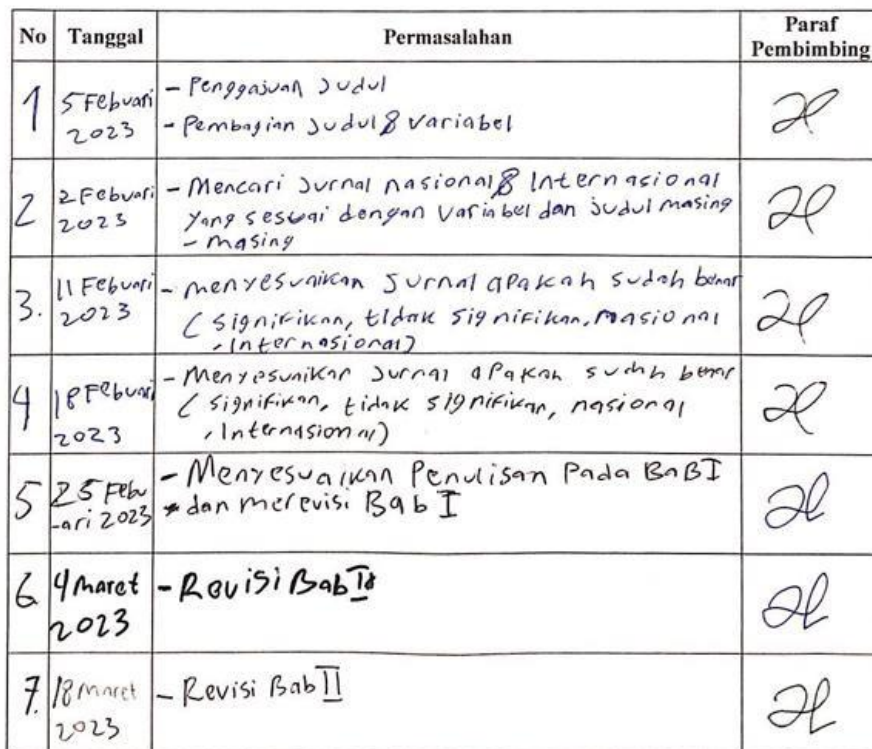 No Tanggal Permasalahan Paraf
Pembimbing
1 5 Febuari - Penggajuan Judul
2023 - Pembagian Judul & Variabel
2 2 Febuari - Mencari Jurnal nasional & Internasional
2023 yang sesuai dengan Variabel dan judul masing
- masing
3. 11 Febuari - menyesuaikan Jurnal apakah sudah benar
2023 ( signifikan, tidak signifikan, nasional
, Internasional)
4 18 Febuari - Menyesuaikan Jurnal apakah sudah benar
2023 ( signifikan, tidak signifikan, nasional
, Internasional)
5 25 Febu - Menyesuaikan Penulisan Pada BaB I
-ari 2023 dan merevisi Bab I
6. 4 Maret - Revisi Bab
2023
7. 18 Maret - Revisi Bab II
2023